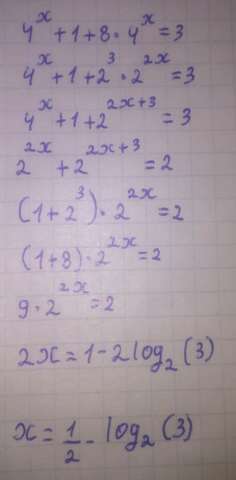 4^x + 1 + 8 · 4^x = 3
4^x + 1 + 2^3 · 2^2x = 3
4^x + 1 + 2^2x+3 = 3
2^2x + 2^2x+3 = 2
(1 + 2^3) · 2^2x = 2
(1 + 8) · 2^2x = 2
9 · 2^2x = 2
2x = 1 - 2 log₂ (3)
x = 1/2 - log₂ (3)